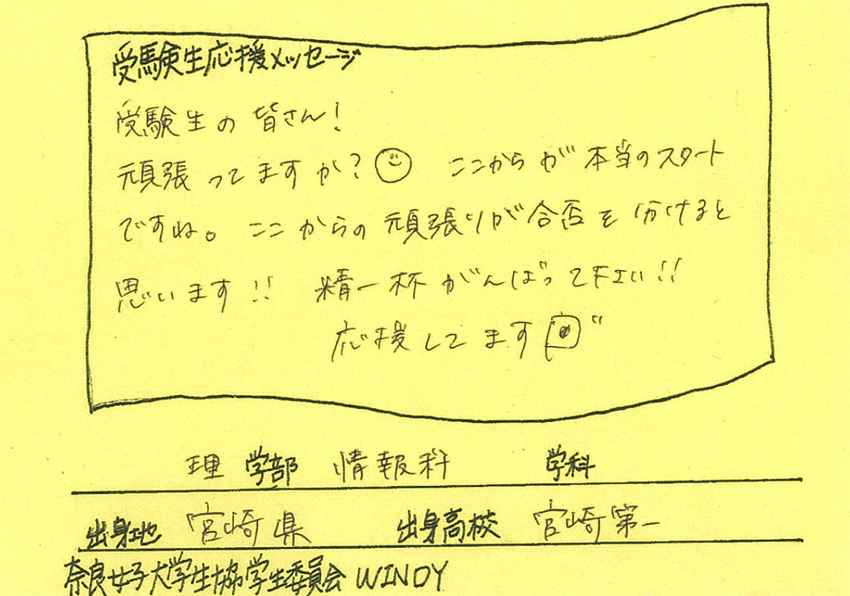 受験生応援メッセージ
受験生の皆さん!
頑張ってますか? ここからが本当のスタート
ですね。ここからの頑張りが合否を分けると
思います!! 精一杯がんばって下さい!!
応援してます
理 学部 情報科 学科
出身地 宮崎県 出身高校 宮崎第一
奈良女子大学生協学生委員会 WINDY